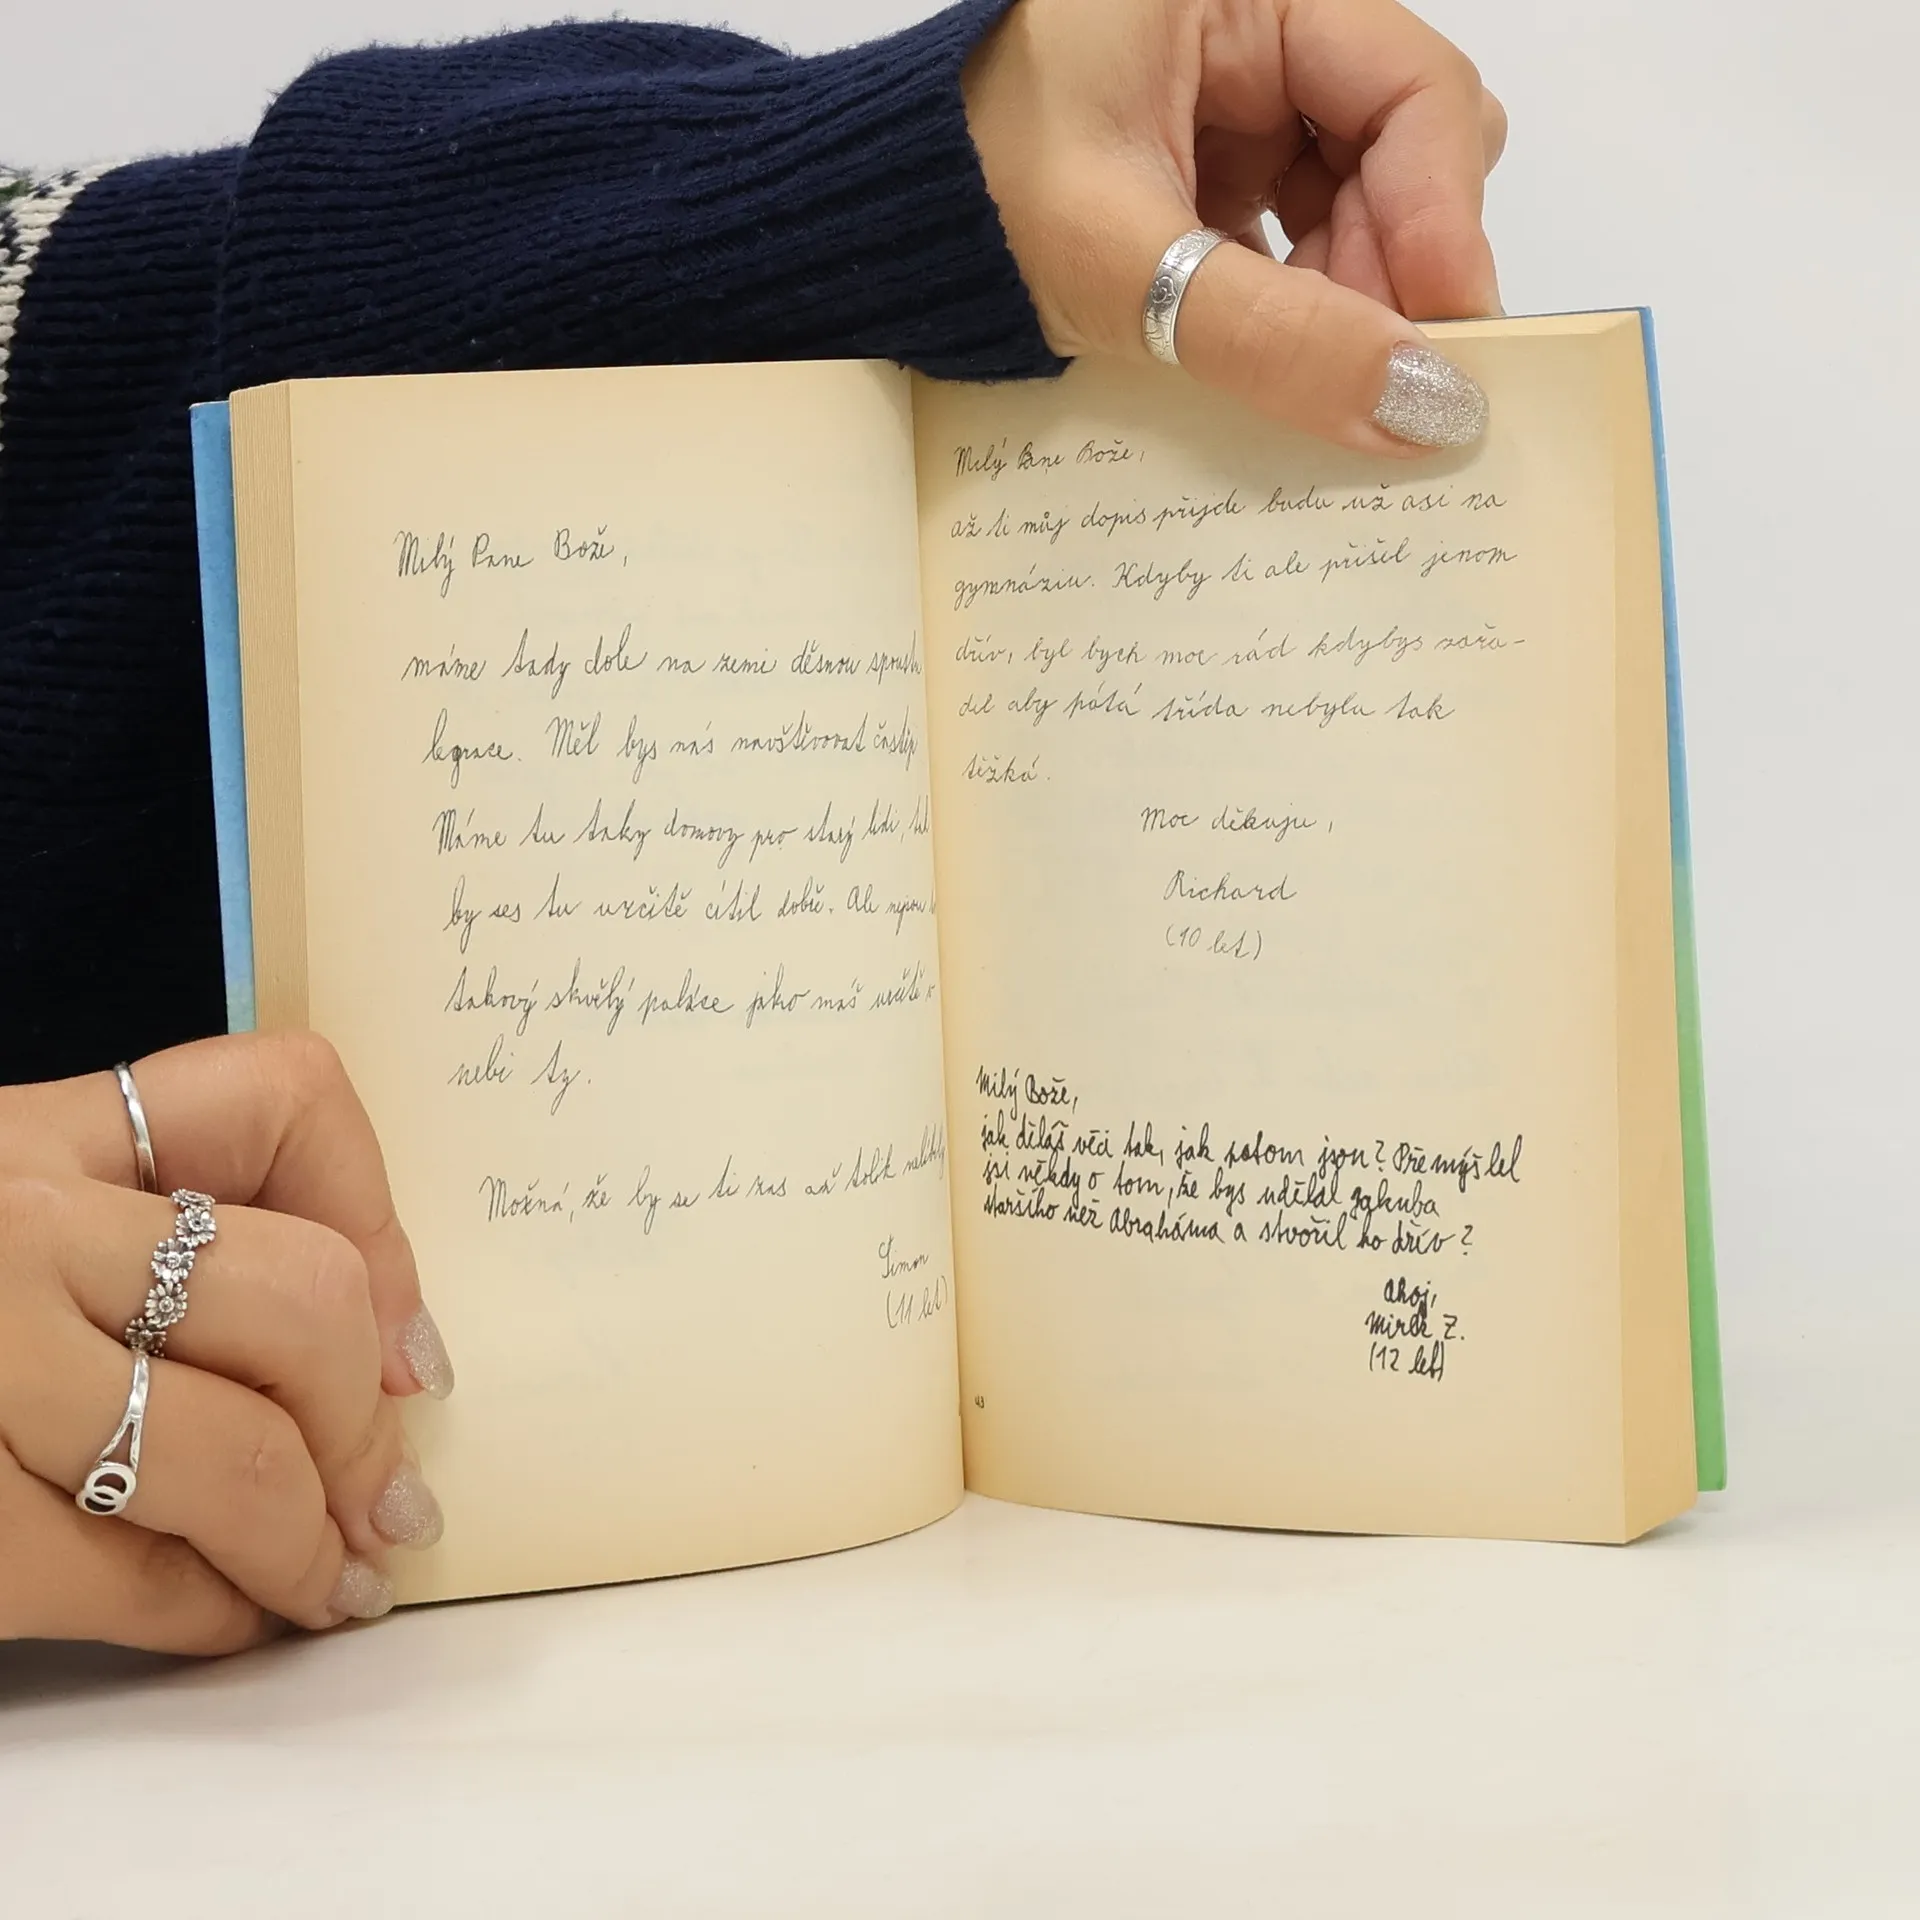 Milý Pane Bože,
máme tady dole na zemi děsnou
legrace. Měl bys nás navštěvovat
Máme tu taky domovy pro starý lidi,
by ses tu určitě cítil dobře. Ale
takový skvělý paláce jako máš určitě v
nebi ty.
Možná, že by se ti zas až tolik nelíbily
Šimon
(11 let)
Milý Pane Bože,
až ti můj dopis přijde budu už asi na
gymnáziu. Kdyby ti ale přišel jenom
dřív, byl bych moc rád kdybys zařa-
del aby pátá třída nebyla tak
těžká.
Moc děkuju,
Richard
(10 let)
Milý Bože,
jak děláš věci tak, jak potom jsou? Přemýšlel
jsi někdy o tom, že bys udělal Jakuba
staršího než Abraháma a stvořil ho dřív?
Ahoj,
Mirek Z.
(12 let)
43